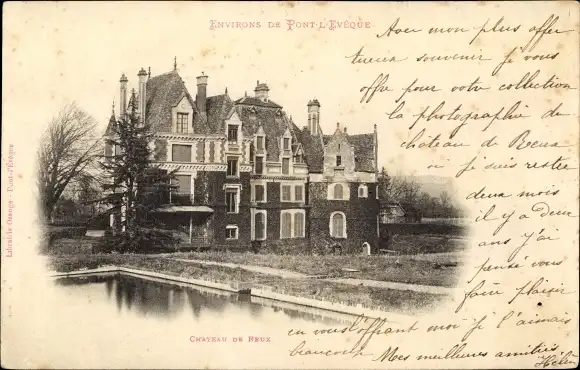 ENVIRONS DE PONT-L'EVÊQUE
Avec mon plus affec
tueux souvenir je vous
offre pour votre collection
la photographie de
chateau de Reux
ou je suis resté
deux mois
il y a deux
ans j'ai
pensé vous
faire plaisir
en vous l'offrant moi je l'aimais
beaucoup Mes meilleures amitiés
Hélèn
CHATEAU DE REUX
Librairie Orange - Pont-l'Evêque